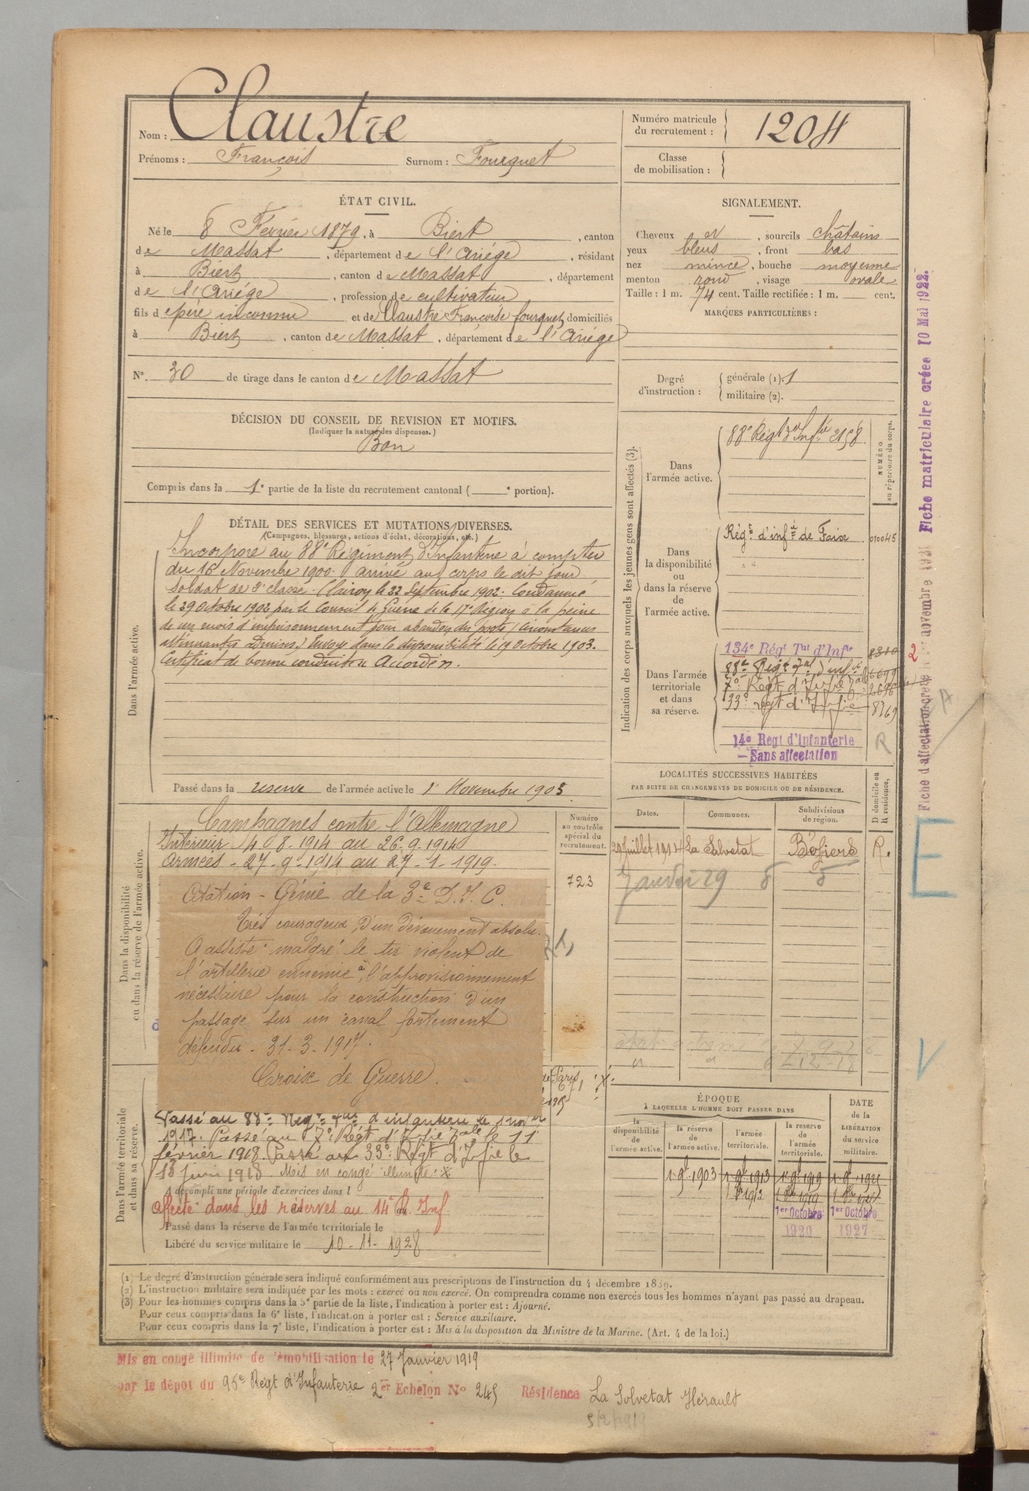 Nom : Claustre
Prénoms : François Surnom : Fourquet
Numéro matricule du recrutement : 1204
Classe de mobilisation :
ÉTAT CIVIL.
Né le 8 Février 1879, à Biert, canton
de Massat, département de l'Ariége, résidant
à Biert, canton de Massat, département
de l'Ariége, profession de cultivateur
fils de père inconnu et de Claustre Françoise fourquet, domiciliés
à Biert, canton de Massat, département de l'Ariége
N° 30 de tirage dans le canton de Massat
SIGNALEMENT.
Cheveux et, sourcils châtains
yeux bleus, front bas
nez mince, bouche moyenne
menton rond, visage ovale
Taille : 1 m. 74 cent. Taille rectifiée : 1 m. cent.
MARQUES PARTICULIÈRES :
Degré d'instruction : générale (1). 1
militaire (2).
DÉCISION DU CONSEIL DE REVISION ET MOTIFS.
(Indiquer la nature des dispenses.)
Bon
Compris dans la 1e partie de la liste du recrutement cantonal ( e portion).
DÉTAIL DES SERVICES ET MUTATIONS DIVERSES.
(Campagnes, blessures, actions d'éclat, décorations, etc.)
Dans l'armée active.
Incorporé au 88e Régiment d'Infanterie à compter
du 16 Novembre 1900 arrivé au corps le dit jour
soldat de 2e classe. Clairon le 22 Septembre 1902. Condamné
le 29 octobre 1902 par le Conseil de Guerre de la 17e Région à la peine
de un mois d'emprisonnement pour abandon du poste (circonstances
atténuantes admises) Envoyé dans la disponibilité le 19 octobre 1903.
Certificat de bonne conduite Accordé.
Passé dans la réserve de l'armée active le 1er Novembre 1903
Indication des corps auxquels les jeunes gens sont affectés (3).
NUMÉRO au répertoire du corps.
Dans l'armée active.
88e Régt d'Infie
Dans la disponibilité ou dans la réserve de l'armée active.
Régt d'infie de Foix 010045
Dans l'armée territoriale et dans sa réserve.
134e Régt Tal d'Infie
88e Régt Tal d'infie
7e Régt d'Infie Tale
93e regt d'Infie 8769
14e Regt d'Infanterie
— Sans affectation
R
LOCALITÉS SUCCESSIVES HABITÉES
PAR SUITE DE CHANGEMENTS DE DOMICILE OU DE RÉSIDENCE.
Dates. Communes. Subdivisions de région. D domicile ou R résidence.
La Salvetat Béziers R.
Janvier 29
Dans la disponibilité ou dans la réserve de l'armée active.
Numéro au contrôle spécial du recrutement.
723
Campagnes contre l'Allemagne
Intérieur . 4-8-1914 au 26.9.1914
Armées - 27.9.1914 au 27-1-1919.
Citation - Génie de la 3e D.I.C.
Très courageux, d'un dévouement absolu.
A assisté malgré le tir violent de
l'artillerie ennemie à l'approvisionnement
nécessaire pour la construction d'un
passage sur un canal fortement
défendu - 31-3-1917.
Croix de Guerre.
Dans l'armée territoriale et dans sa réserve.
Passé au 88e Régt Tal d'infanterie le
1917. Passé au 7e Régt d'Infie Tale le 11
février 1918. Passé au 93e Régt d'Infie le
13 juin 1918 Mis en congé illimité : X
A accompli une période d'exercices dans l
Affecté dans les réserves au 14e R. Inf.
Passé dans la réserve de l'armée territoriale le
Libéré du service militaire le 10-11-1928
ÉPOQUE
À LAQUELLE L'HOMME DOIT PASSER DANS
la disponibilité de l'armée active. la réserve de l'armée active. l'armée territoriale. la réserve de l'armée territoriale. DATE de la LIBÉRATION du service militaire.
1er Octobre 1er Octobre
1920 1927
Fiche matriculaire créée 10 Mai 1922.
(1) Le degré d'instruction générale sera indiqué conformément aux prescriptions de l'instruction du 4 décembre 1889.
(2) L'instruction militaire sera indiquée par les mots : exercé ou non exercé. On comprendra comme non exercés tous les hommes n'ayant pas passé au drapeau.
(3) Pour les hommes compris dans la 5e partie de la liste, l'indication à porter est : Ajourné.
Pour ceux compris dans la 6e liste, l'indication à porter est : Service auxiliaire.
Pour ceux compris dans la 7e liste, l'indication à porter est : Mis à la disposition du Ministre de la Marine. (Art. 4 de la loi.)
Mis en congé illimité de démobilisation le 27 Janvier 1919
par le dépôt du 95e Régt d'Infanterie 2e Echelon N° 245 Résidence La Salvetat Hérault